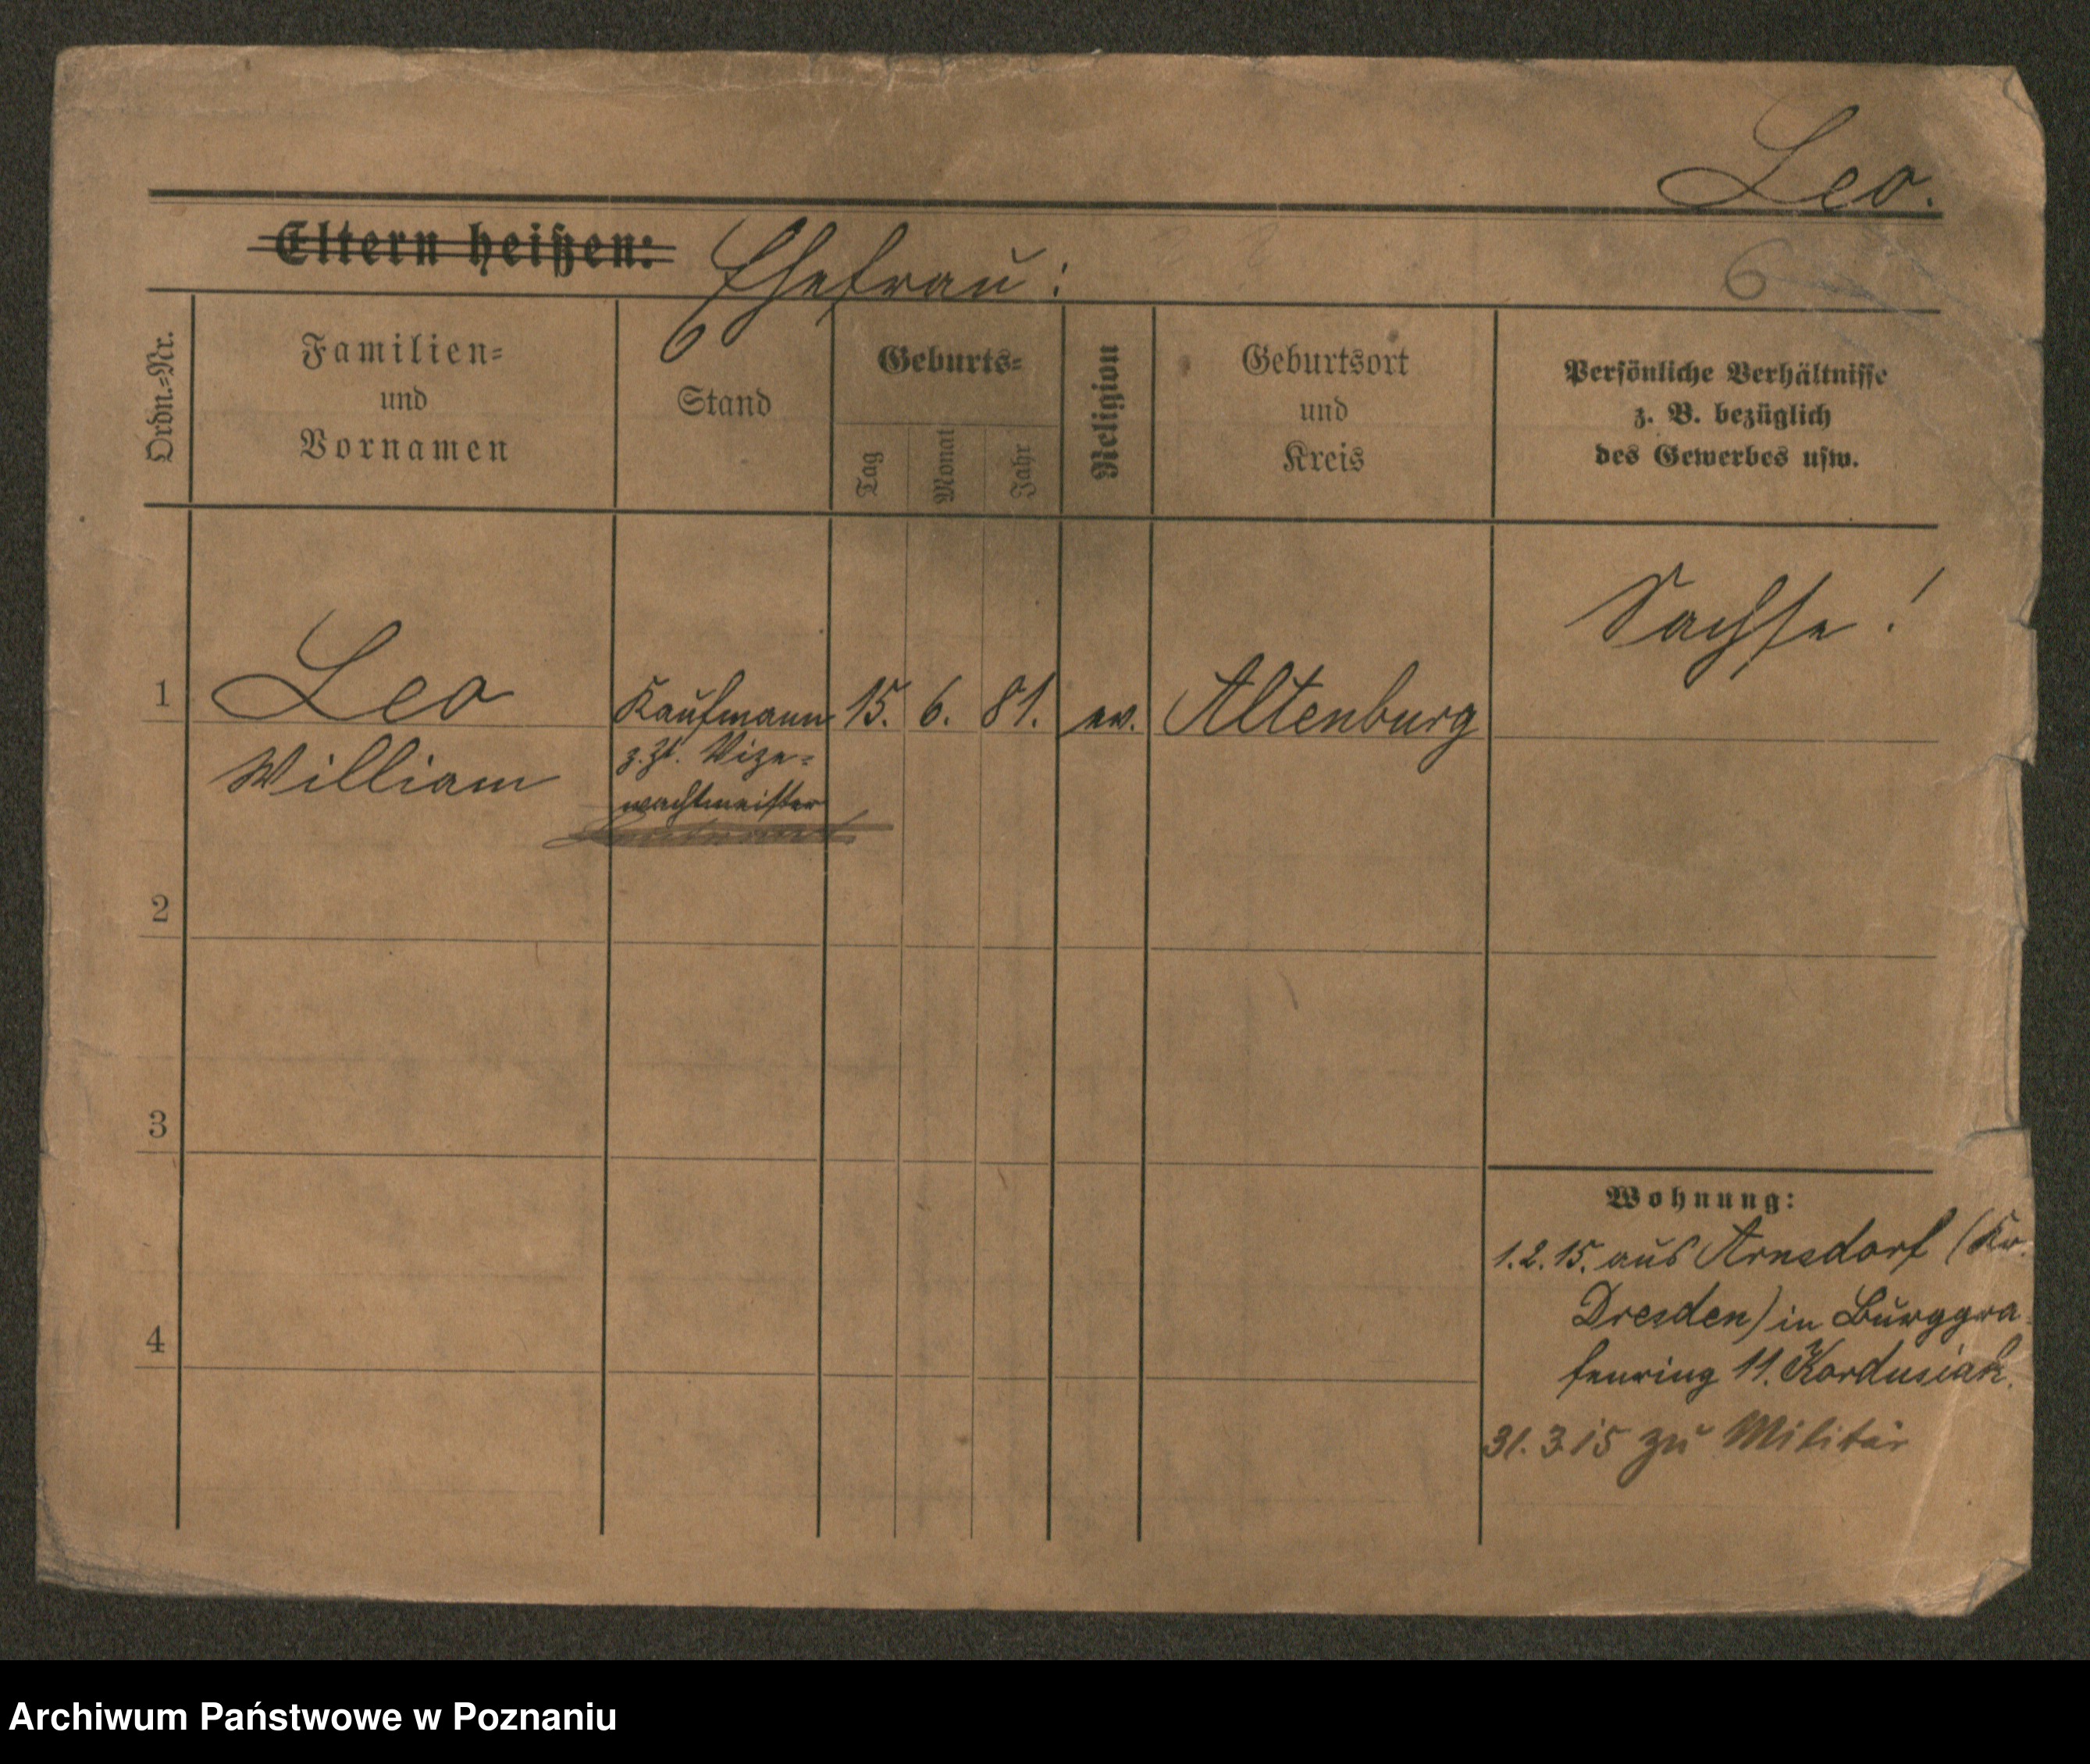 Leo.
Eltern heißen: Ehefrau:
6
Ordn.=Nr.
Familien=
und
Vornamen
Stand
Geburts=
Tag
Monat
Jahr
Religion
Geburtsort
und
Kreis
Persönliche Verhältnisse
z. B. bezüglich
des Gewerbes usw.
Sachse!
1 Leo Kaufmann 15. 6. 81. ev. Altenburg
William z. Zt. Vize=
wachtmeister
2
3
4
Wohnung:
1.2.15. aus Arnsdorf (Kr.
Dresden) in Burggra
fenring 11. Kordusiak.
31.3.15 zu Militär
Archiwum Państwowe w Poznaniu